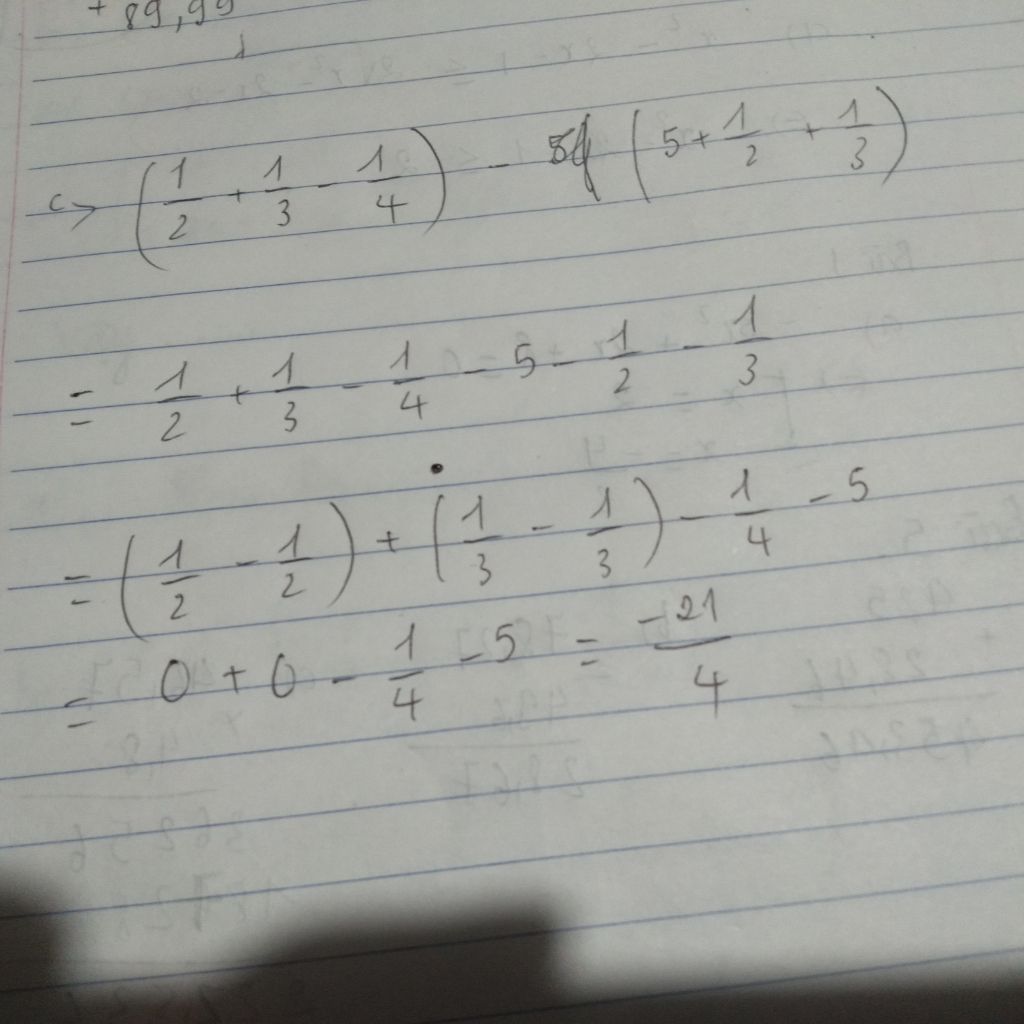 + 89,99
c> (1/2 + 1/3 - 1/4) - (5 + 1/2 + 1/3)
= 1/2 + 1/3 - 1/4 - 5 - 1/2 - 1/3
= (1/2 - 1/2) + (1/3 - 1/3) - 1/4 - 5
= 0 + 0 - 1/4 - 5 = -21/4